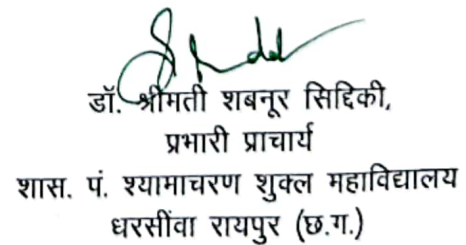 डॉ. श्रीमती शबनूर सिद्दिकी,
प्रभारी प्राचार्य
शास. पं. श्यामाचरण शुक्ल महाविद्यालय
धरसींवा रायपुर (छ.ग.)